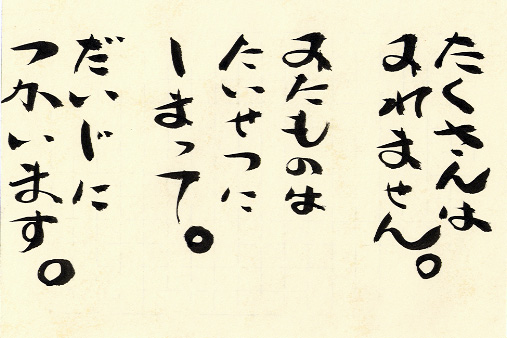 たくさんは
みれません。
みたものは
たいせつに
しまって。
だいじに
つかいます。